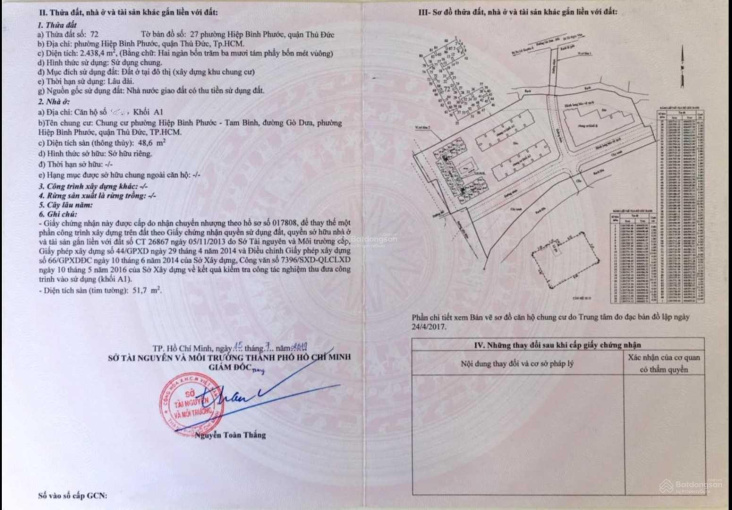 II. Thửa đất, nhà ở và tài sản khác gắn liền với đất:
1. Thửa đất
a) Thửa đất số: 72 Tờ bản đồ số: 27 phường Hiệp Bình Phước, quận Thủ Đức
b) Địa chỉ: phường Hiệp Bình Phước, quận Thủ Đức, Tp.HCM.
c) Diện tích: 2.438,4 m², (Bằng chữ: Hai ngàn bốn trăm ba mươi tám phẩy bốn mét vuông)
d) Hình thức sử dụng: Sử dụng chung.
đ) Mục đích sử dụng đất: Đất ở tại đô thị (xây dựng khu chung cư)
e) Thời hạn sử dụng: Lâu dài.
g) Nguồn gốc sử dụng đất: Nhà nước giao đất có thu tiền sử dụng đất.
2. Nhà ở:
a) Địa chỉ: Căn hộ số Khối A1
b)Tên chung cư: Chung cư phường Hiệp Bình Phước - Tam Bình, đường Gò Dưa, phường
Hiệp Bình Phước, quận Thủ Đức, TP.HCM.
c) Diện tích sàn (thông thủy): 48,6 m²
d) Hình thức sở hữu: Sở hữu riêng.
đ) Thời hạn sở hữu: -/-
e) Hạng mục được sở hữu chung ngoài căn hộ: -/-
3. Công trình xây dựng khác: -/-
4. Rừng sản xuất là rừng trồng: -/-
5. Cây lâu năm:
6. Ghi chú:
- Giấy chứng nhận này được cấp do nhận chuyển nhượng theo hồ sơ số 017808, để thay thế một
phần công trình xây dựng trên đất theo Giấy chứng nhận quyền sử dụng đất, quyền sở hữu nhà ở
và tài sản gắn liền với đất số CT 26867 ngày 05/11/2013 do Sở Tài nguyên và Môi trường cấp,
Giấy phép xây dựng số 44/GPXD ngày 29 tháng 4 năm 2014 và Điều chỉnh Giấy phép xây dựng
số 66/GPXDĐC ngày 10 tháng 6 năm 2014 của Sở Xây dựng, Công văn số 7396/SXD-QLCLXD
ngày 10 tháng 5 năm 2016 của Sở Xây dựng về kết quả kiểm tra công tác nghiệm thu đưa công
trình vào sử dụng (khối A1).
- Diện tích sàn (tim tường): 51,7 m².
TP. Hồ Chí Minh, ngày tháng năm
SỞ TÀI NGUYÊN VÀ MÔI TRƯỜNG THÀNH PHỐ HỒ CHÍ MINH
GIÁM ĐỐC
SỞ
TÀI NGUYÊN
VÀ MÔI TRƯỜNG
Nguyễn Toàn Thắng
Số vào sổ cấp GCN:
III- Sơ đồ thửa đất, nhà ở và tài sản khác gắn liền với đất:
Phần chi tiết xem Bản vẽ sơ đồ căn hộ chung cư do Trung tâm đo đạc bản đồ lập ngày
24/4/2017.
IV. Những thay đổi sau khi cấp giấy chứng nhận
Nội dung thay đổi và cơ sở pháp lý
Xác nhận của cơ quan
có thẩm quyền
Batdongsan